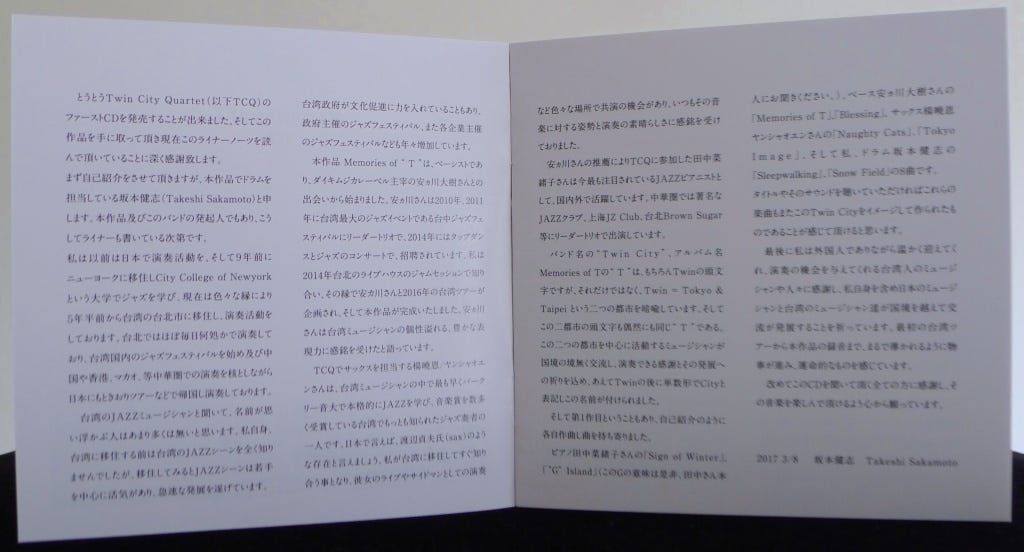 とうとうTwin City Quartet(以下TCQ)の
ファーストCDを発売することが出来ました。そしてこの
作品を手に取って頂き現在このライナーノーツを読
んで頂いていることに深く感謝致します。
まず自己紹介をさせて頂きますが、本作品でドラムを
担当している坂本健志(Takeshi Sakamoto)と申
します。本作品及びこのバンドの発起人でもあり、こう
してライナーも書いている次第です。
私は以前は日本で演奏活動を、そして9年前に
ニューヨークに移住しCity College of Newyork
という大学でジャズを学び、現在は色々な縁により
5年半前から台湾の台北市に移住し、演奏活動を
しております。台北ではほぼ毎日何処かで演奏して
おり、台湾国内のジャズフェスティバルを始め及び中
国や香港、マカオ、等中華圏での演奏を核としながら
日本にもときおりツアーなどで帰国し演奏しております。
台湾のJAZZミュージシャンと聞いて、名前が思
い浮かぶ人はあまり多くは無いと思います。私自身、
台湾に移住する前は台湾のJAZZシーンを全く知り
ませんでしたが、移住してみるとJAZZシーンは若手
を中心に活気があり、急速な発展を遂げています。
台湾政府が文化促進に力を入れていることもあり、
政府主催のジャズフェスティバル、また各企業主催
のジャズフェスティバルなども年々増加しています。
本作品 Memories of "T"は、ベーシストであ
り、ダイキムジカレーベル主宰の安ヵ川大樹さんとの
出会いから始まりました。安ヵ川さんは2010年、2011
年に台湾最大のジャズイベントである台中ジャズフェ
スティバルにリーダートリオで、2014年にはタップダン
スとジャズのコンサートで、招聘されています。私は
2014年台北のライブハウスのジャムセッションで知り
合い、その縁で安カ川さんと2016年の台湾ツアーが
企画され、そして本作品が完成いたしました。安カ川
さんは台湾ミュージシャンの個性溢れる、豊かな表
現力に感銘を受けたと語っています。
TCQでサックスを担当する楊曉恩/ヤンシャオエ
ンさんは、台湾ミュージシャンの中で最も早くバーク
リー音大で本格的にJAZZを学び、音楽賞を数多
く受賞している台湾でもっとも知られたジャズ奏者の
一人です。日本で言えば、渡辺貞夫氏(sax)のよう
な存在と言えましょう。私が台湾に移住してすぐ知り
合う事となり、彼女のライブやサイドマンとしての演奏
など色々な場所で共演の機会があり、いつもその音
楽に対する姿勢と演奏の素晴らしさに感銘を受け
ておりました。
安ヵ川さんの推薦によりTCQに参加した田中菜
緒子さんは今最も注目されているJAZZピアニストと
して、国内外で活躍しています。中華圏では著名な
JAZZクラブ、上海JZ Club、台北Brown Sugar
等にリーダートリオで出演しています。
バンド名の"Twin City"、アルバム名
Memories of Tの"T"は、もちろんTwinの頭文
字ですが、それだけではなく、Twin = Tokyo &
Taipei という二つの都市を暗喩しています。そして
この二都市の頭文字も偶然にも同じ"T"である。
この二つの都市を中心に活動するミュージシャンが
国境の境無く交流し、演奏できる感謝とその発展へ
の祈りを込め、あえてTwinの後に単数形でCityと
表記しこの名前が付けられました。
そして第1作目ということもあり、自己紹介のように
各自作曲し曲を持ち寄りました。
ピアノ田中菜緒子さんの「Sign of Winter」、
「"G" Island」(このGの意味は是非、田中さん本
人にお聞きください。)、ベース安ヵ川大樹さんの
「Memories of T」、「Blessing」、サックス楊曉恩
ヤンシャオエンさんの「Naughty Cats」、「Tokyo
Image」、そして私、ドラム坂本健志の
「Sleepwalking」、「Snow Field」の8曲です。
タイトルやそのサウンドを聴いていただければこれらの
楽曲もまたこのTwin Cityをイメージして作られたも
のであることが感じて頂けると思います。
最後に私は外国人でありながら温かく迎えてく
れ、演奏の機会を与えてくれる台湾人のミュージ
シャンや人々に感謝し、私自身を含め日本のミュージ
シャンと台湾のミュージシャン達が国境を越えて交
流が発展することを祈っています。最初の台湾ツ
アーから本作品の録音まで、まるで導かれるように物
事が進み、運命的なものを感じています。
改めてこのCDを聞いて頂く全ての方に感謝し、そ
の音楽を楽しんで頂けるよう心から願っています。
2017 3/8 坂本健志 Takeshi Sakamoto